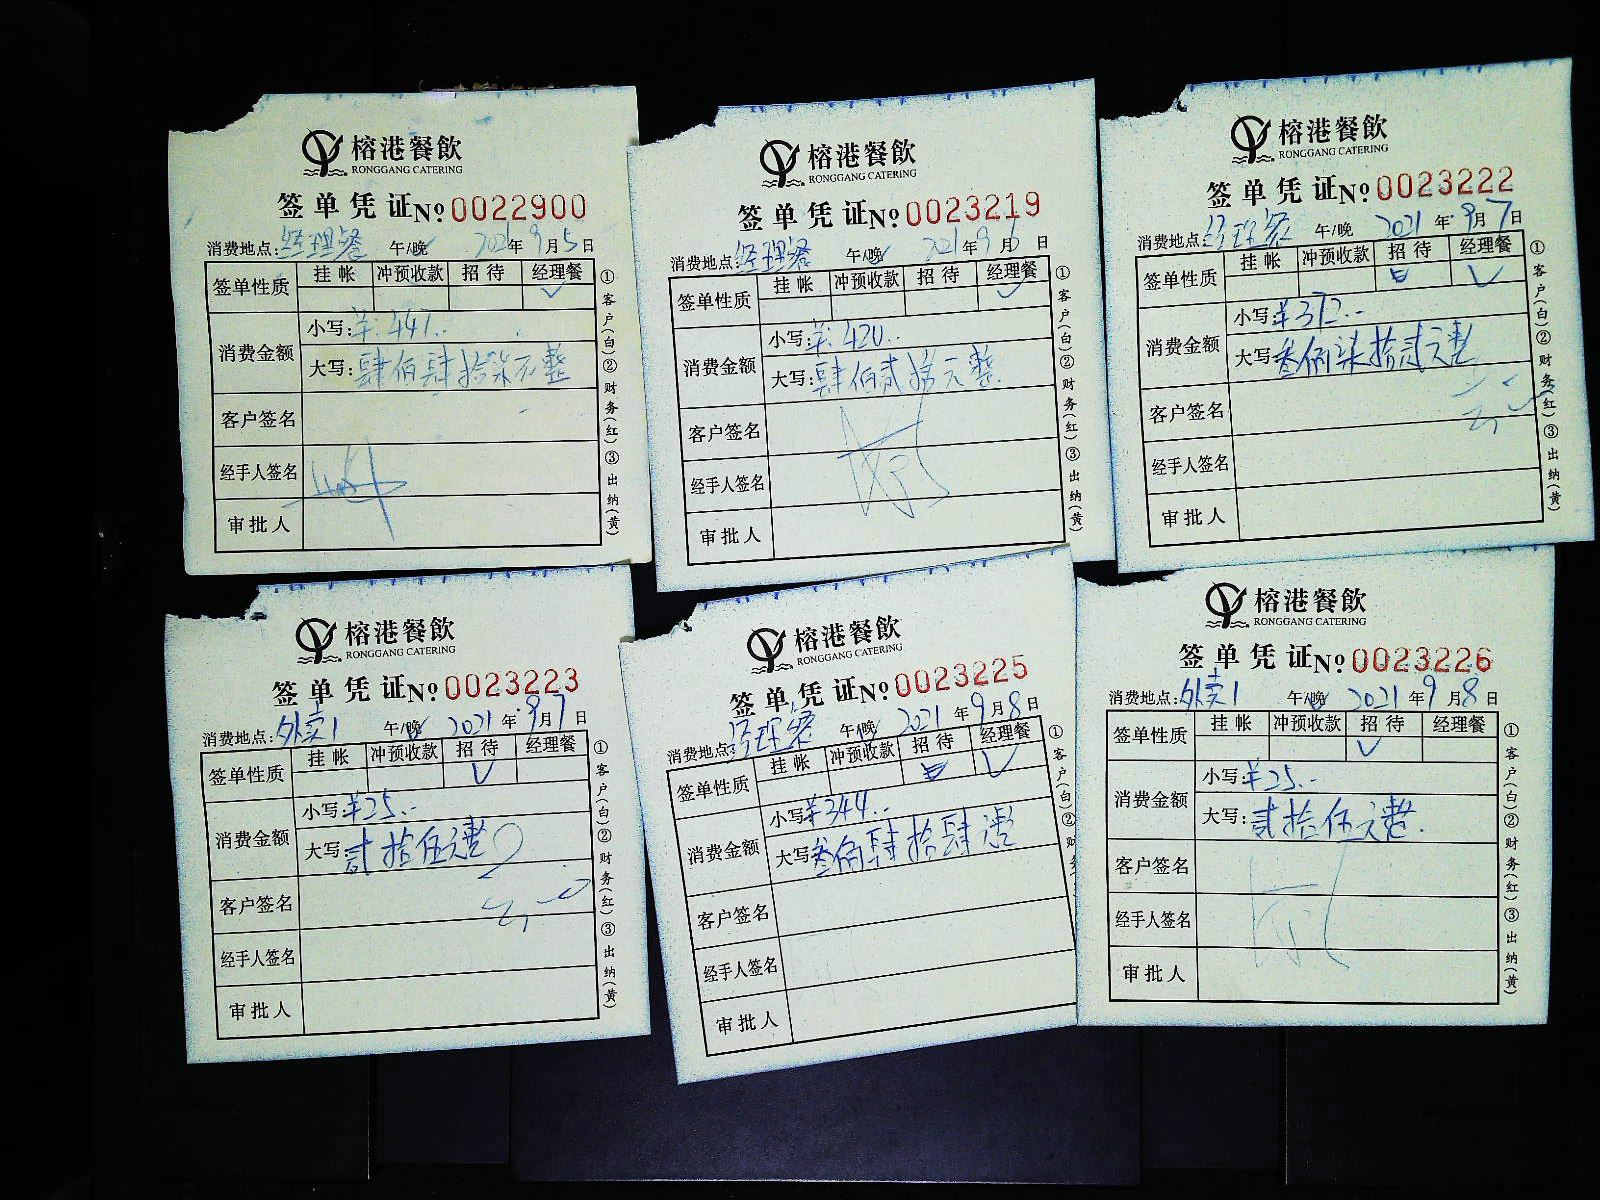 榕港餐飲
RONGGANG CATERING
签单凭证№0022900
消费地点:经理餐 午/晚 2021年9月5日
签单性质 挂帐 冲预收款 招待 经理餐
✓
消费金额 小写:¥:447..
大写:肆佰肆拾柒元整
客户签名
经手人签名
审批人
①客户(白)②财务(红)③出纳(黄)
榕港餐飲
RONGGANG CATERING
签单凭证№0023219
消费地点:经理餐 午/晚 2021年9月 日
签单性质 挂帐 冲预收款 招待 经理餐
✓
消费金额 小写:¥:420..
大写:肆佰贰拾元整
客户签名
经手人签名
审批人
①客户(白)②财务(红)③出纳(黄)
榕港餐飲
RONGGANG CATERING
签单凭证№0023222
消费地点:经理餐 午/晚 2021年9月7日
签单性质 挂帐 冲预收款 招待 经理餐
✓
消费金额 小写:¥372..
大写:叁佰柒拾贰元整
客户签名
经手人签名
审批人
①客户(白)②财务(红)③出纳(黄)
榕港餐飲
RONGGANG CATERING
签单凭证№0023223
消费地点:外卖1 午/晚 2021年9月7日
签单性质 挂帐 冲预收款 招待 经理餐
✓
消费金额 小写:¥25..
大写:贰拾伍元整
客户签名
经手人签名
审批人
①客户(白)②财务(红)③出纳(黄)
榕港餐飲
RONGGANG CATERING
签单凭证№0023225
消费地点:经理餐 午/晚 2021年9月8日
签单性质 挂帐 冲预收款 招待 经理餐
✓
消费金额 小写:¥344..
大写:叁佰肆拾肆元整
客户签名
经手人签名
审批人
①客户(白)②财务(红)③出纳(黄)
榕港餐飲
RONGGANG CATERING
签单凭证№0023226
消费地点:外卖1 午/晚 2021年9月8日
签单性质 挂帐 冲预收款 招待 经理餐
✓
消费金额 小写:¥25..
大写:贰拾伍元整.
客户签名
经手人签名
审批人
①客户(白)②财务(红)③出纳(黄)